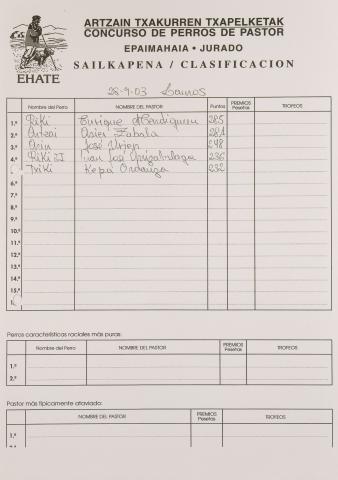 ARTZAIN TXAKURREN TXAPELKETAK
CONCURSO DE PERROS DE PASTOR
EPAIMAHAIA • JURADO
SAILKAPENA / CLASIFICACION
EHATE
28-9-03
Nombre del Perro NOMBRE DEL PASTOR Puntos PREMIOS Pesetas TROFEOS
1.º Riki Enrique 285
2.º Artzai Asier Zabala 281
3.º José 248
4.º Riki II Juan José 236
5.º Txiki Kepa 232
6.º
7.º
8.º
9.º
10.º
11.º
12.º
13.º
14.º
15.º
Perros características raciales más puras:
Nombre del Perro NOMBRE DEL PASTOR PREMIOS Pesetas TROFEOS
1.º
2.º
Pastor más típicamente ataviado:
NOMBRE DEL PASTOR PREMIOS Pesetas TROFEOS
1.º